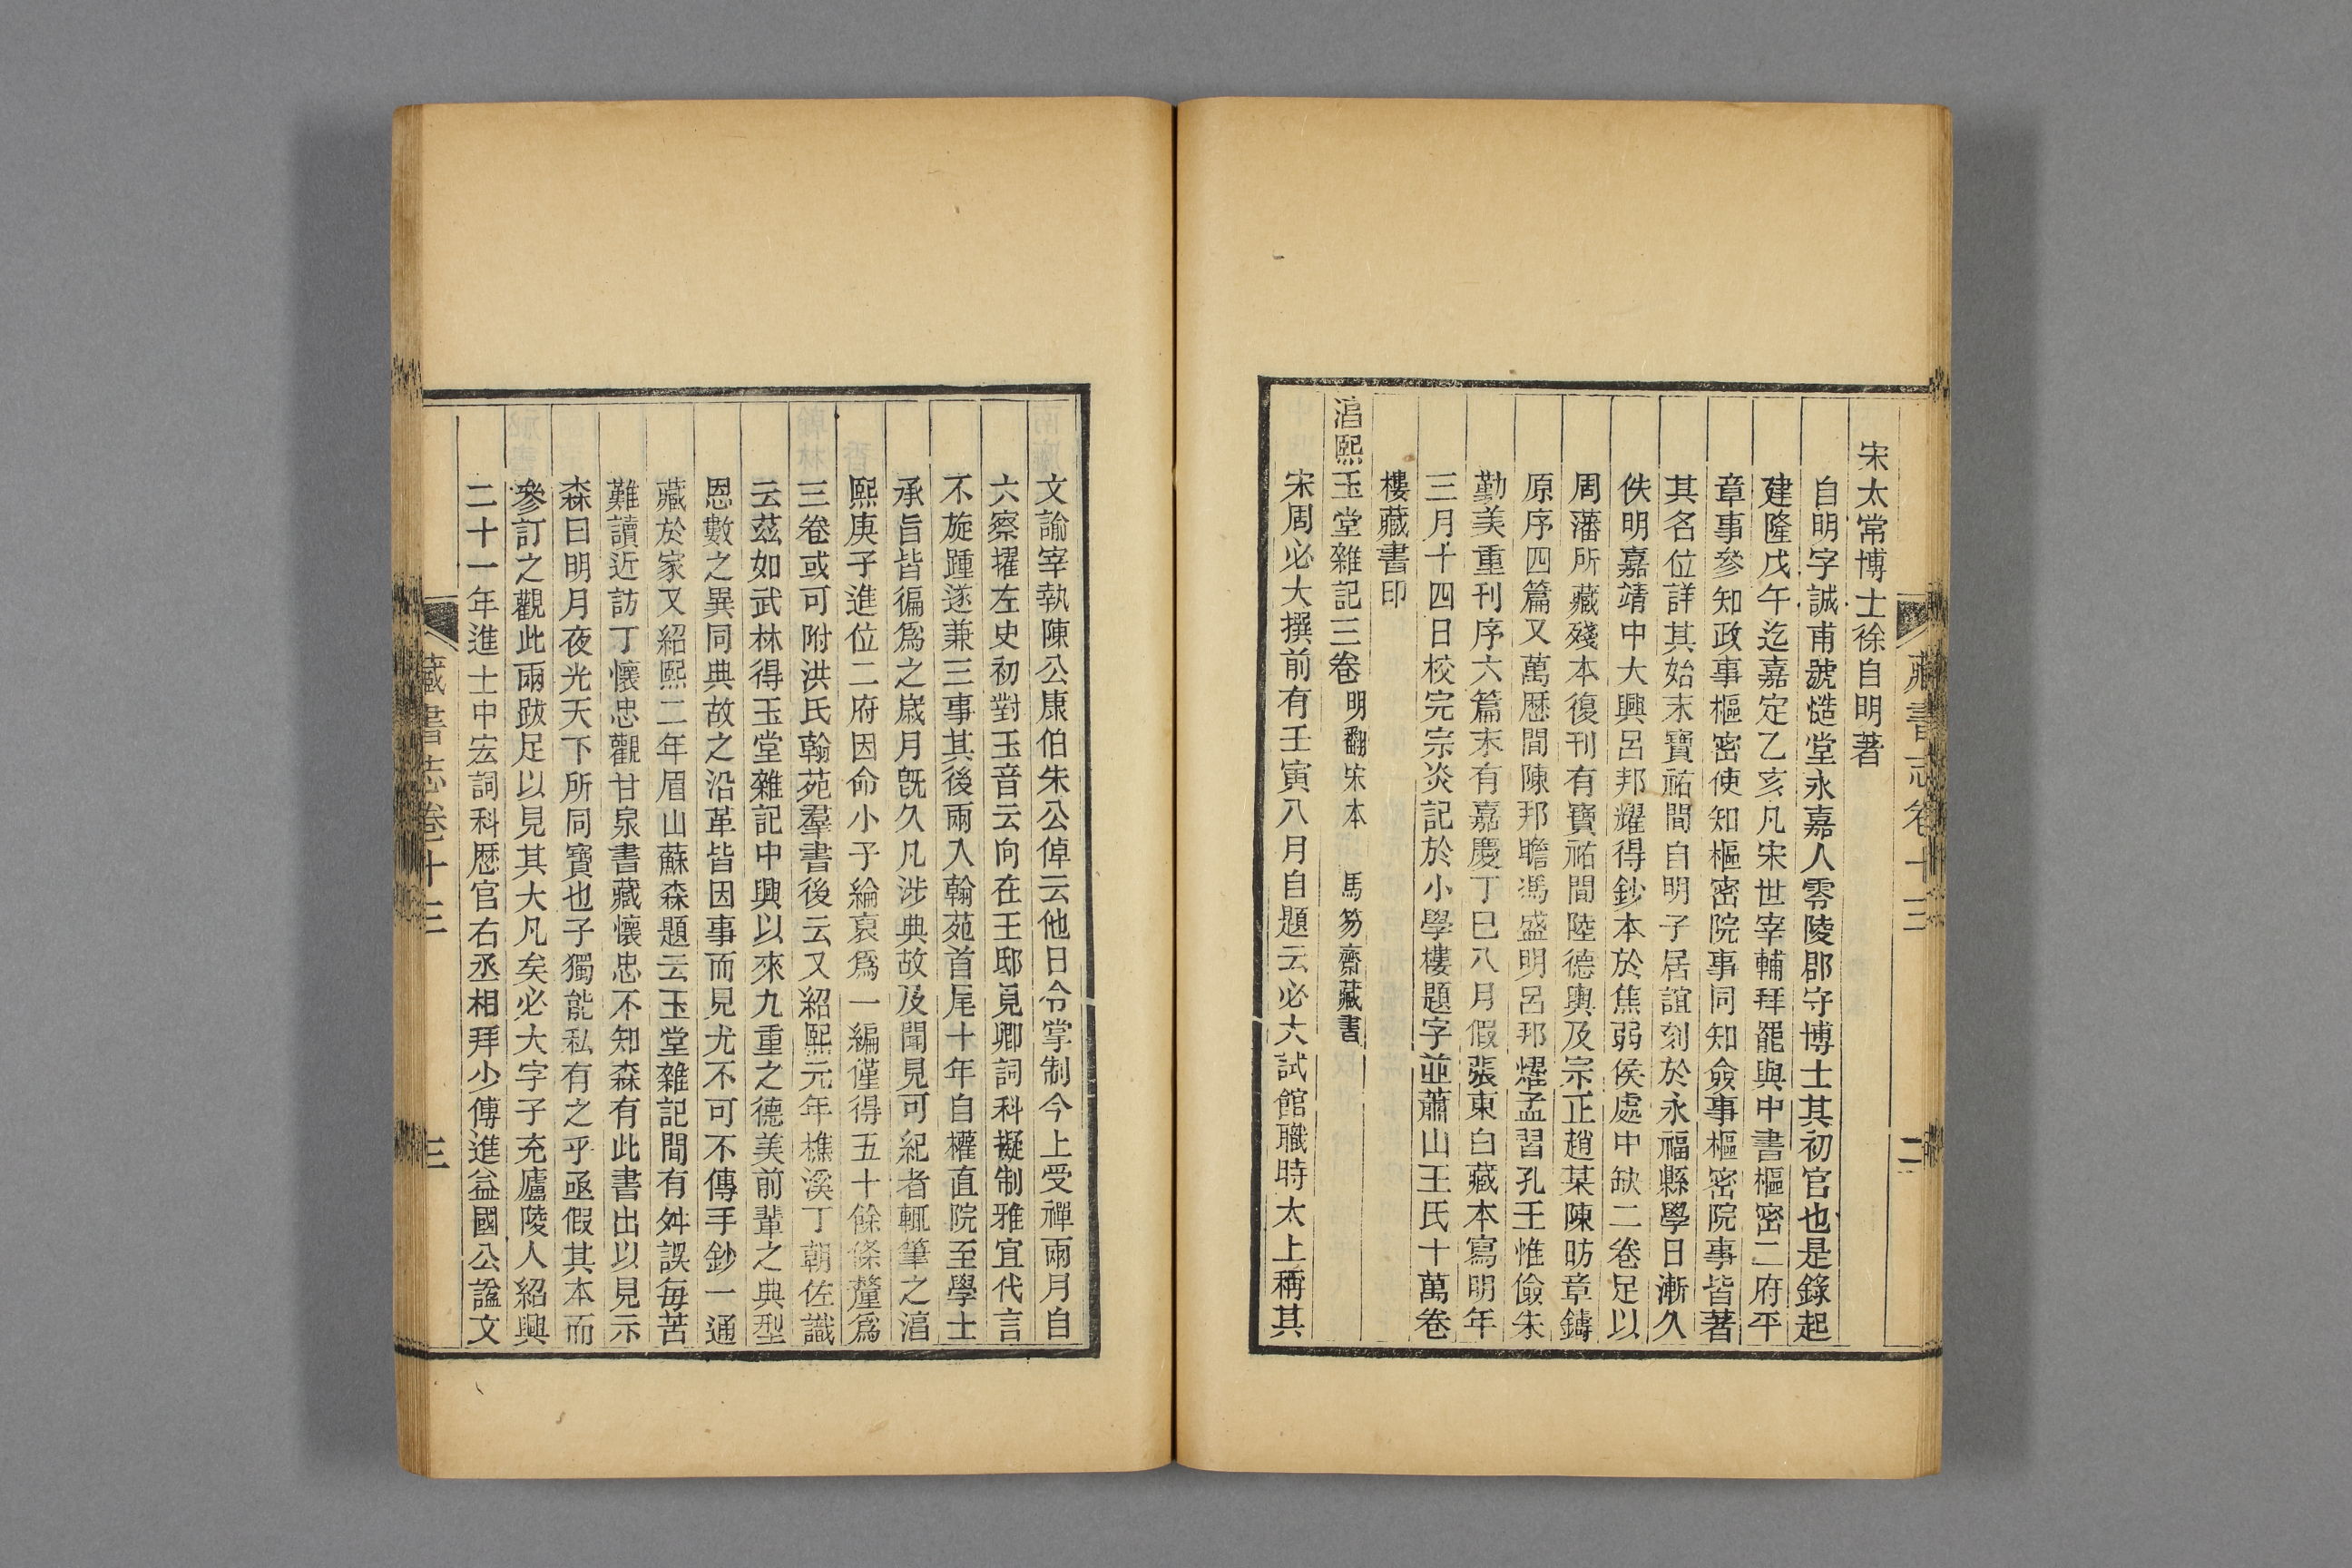 宋太常博士徐自明著
自明字誠甫號慥堂永嘉人零陵郡守博士其初官也是錄起
建隆戊午迄嘉定乙亥凡宋世宰輔拜罷與中書樞密二府平
章事參知政事樞密使知樞密院事同知僉事樞密院事皆著
其名位詳其始末寶祐間自明子居誼刻於永福縣學日漸久
佚明嘉靖中大興呂邦耀得鈔本於焦弱侯處中缺二卷足以
周藩所藏殘本復刊有寶祐間陸德輿及宗正趙某陳昉章鑄
原序四篇又萬歷間陳邦瞻馮盛明呂邦燿孟習孔王惟儉朱
勤美重刊序六篇末有嘉慶丁巳八月假張東白藏本寫明年
三月十四日校完宗炎記於小學樓題字並蕭山王氏十萬卷
樓藏書印
湻熙玉堂雜記三卷 明翻宋本 馬笏齋藏書
宋周必大撰前有壬寅八月自題云必大試館職時太上稱其
藏書志卷十三 二
文諭宰執陳公康伯朱公倬云他日令掌制今上受禪兩月自
六察擢左史初對玉音云向在王邸見卿詞科擬制雅宜代言
不旋踵遂兼三事其後兩入翰苑首尾十年自權直院至學士
承旨皆徧爲之歲月旣久凡涉典故及聞見可紀者輒筆之湻
熙庚子進位二府因命小子綸裒爲一編僅得五十餘條釐爲
三卷或可附洪氏翰苑羣書後云又紹熙元年樵溪丁朝佐識
云茲如武林得玉堂雜記中興以來九重之德美前輩之典型
恩數之異同典故之沿革皆因事而見尤不可不傳手鈔一通
藏於家又紹熙二年眉山蘇森題云玉堂雜記間有舛誤每苦
難讀近訪丁懷忠觀甘泉書藏懷忠不知森有此書出以見示
森曰明月夜光天下所同寶也子獨能私有之乎亟假其本而
參訂之觀此兩跋足以見其大凡矣必大字子充廬陵人紹興
二十一年進士中宏詞科歷官右丞相拜少傅進益國公諡文
藏書志卷十三 三